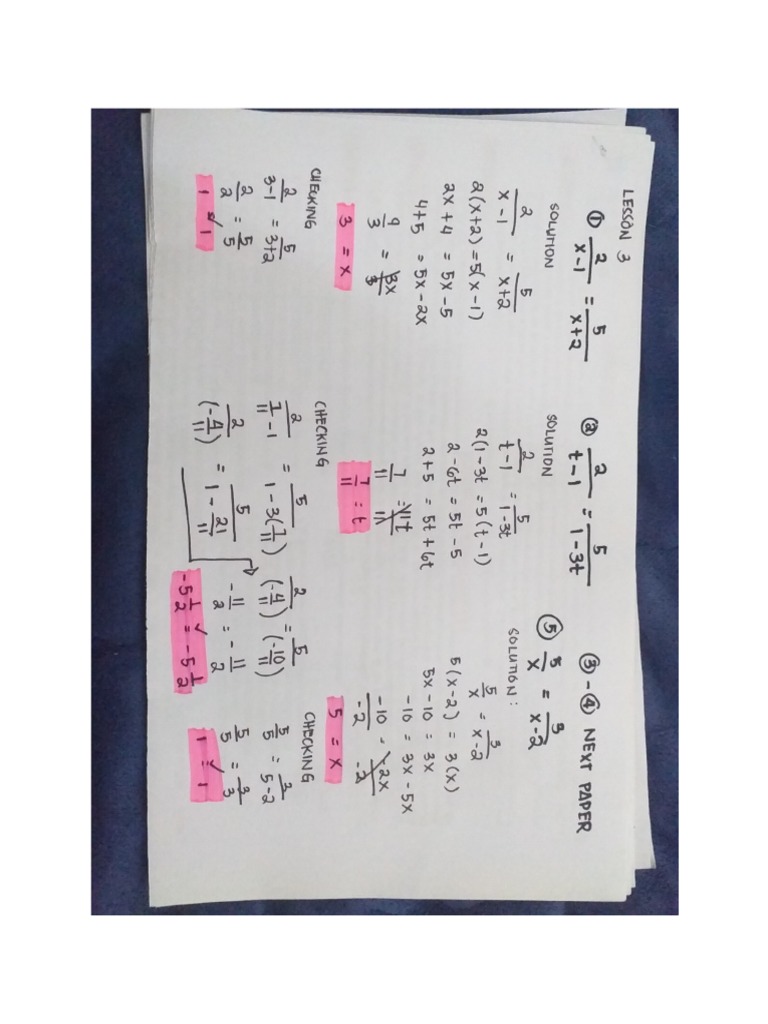 LESSON 3
① 2/(x-1) = 5/(x+2)
SOLUTION
2/(x-1) = 5/(x+2)
2(x+2) = 5(x-1)
2x+4 = 5x-5
4+5 = 5x-2x
9/3 = 3x/3
3 = x
CHECKING
2/(3-1) = 5/(3+2)
2/2 = 5/5
1 ✓= 1
② 2/(t-1) = 5/(1-3t)
SOLUTION
2/(t-1) = 5/(1-3t)
2(1-3t = 5(t-1)
2-6t = 5t-5
2+5 = 5t+6t
7/11 = 11t/11
7/11 = t
CHECKING
2/(7/11 - 1) = 5/(1-3(7/11))
2/(-4/11) = 5/(1 - 21/11)
2/(-4/11) = 5/(-10/11)
-11/2 = -11/2
-5 1/2 ✓= -5 1/2
③-④ NEXT PAPER
⑤ 5/x = 3/(x-2)
SOLUTION:
5/x = 3/(x-2)
5(x-2) = 3(x)
5x-10 = 3x
-10 = 3x-5x
-10/-2 = -2x/-2
5 = x
CHECKING
5/5 = 3/(5-2)
5/5 = 3/3
1 ✓= 1